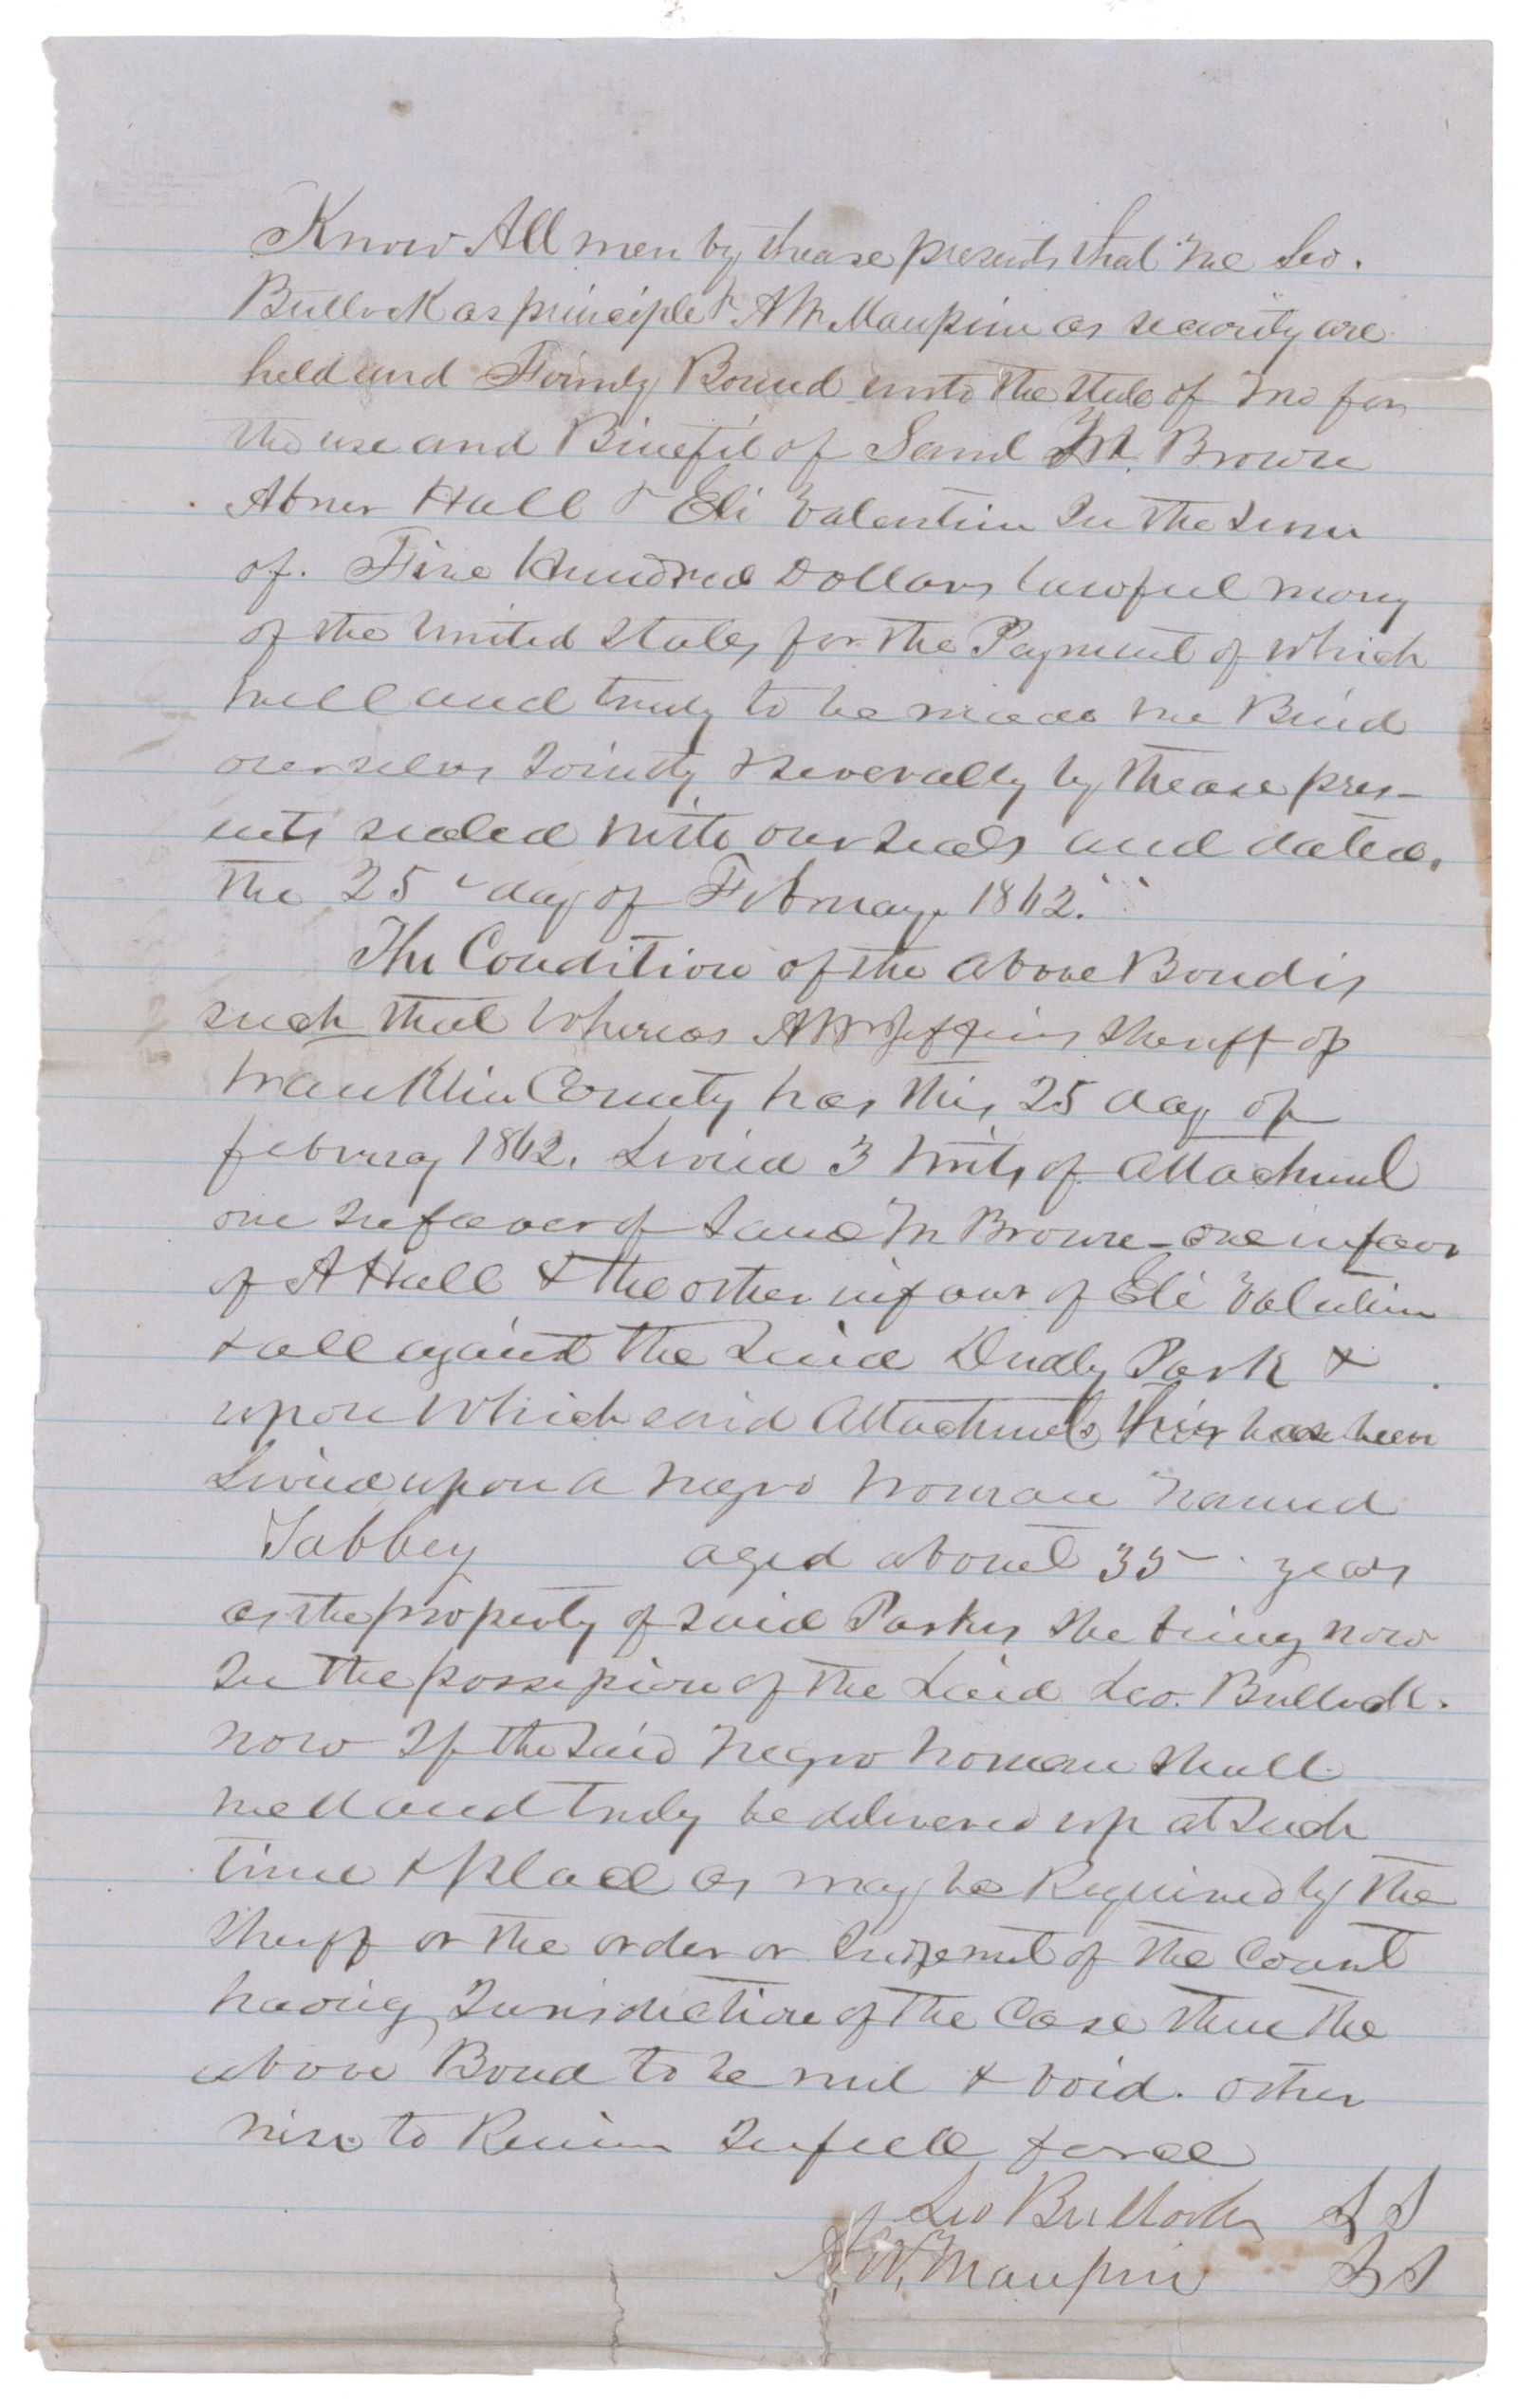 Know All men by thease presents that we Leo.
Bullock as principle & A W Maupin as security are
held and Firmly Bound unto the state of Mo for
the use and Binefit of Saml M. Brown
Abner Hull & Eli Valentine In the sum
of. Five Hundred Dollars lawful mony
of the United States for the Payment of which
well and truly to be made we Bind
ourselvs Jointly & severally by thease pres-
ents sealed with our seals and dated.
the 25 day of Febuary. 1862.
The Condition of the above Bond is
such that Whereas A W Jeffries Sheriff of
Franklin County has this 25 day of
febuary 1862. Levied 3 writs of attachment
one In favor of Saml M Brown - one in favor
of A Hull & the other in favor of Eli Valentine
& all against the Said Dudly Park &
upon Which said Attachments thier has been
Levied upon a negro woman named
Tabbey aged about 35 years
as the property of said Parkes she being now
In the possession of the Said Leo. Bullock.
now If the Said Negro woman shall
well and truly be delivered up at Such
time & place as may be Required by the
Sheriff or the order or Judgement of the Court
having Jurisdiction of the Case then the
above Bond to be null & void. other
wise to Remain In full force
Leo Bullock L S
A. W. Maupin L S